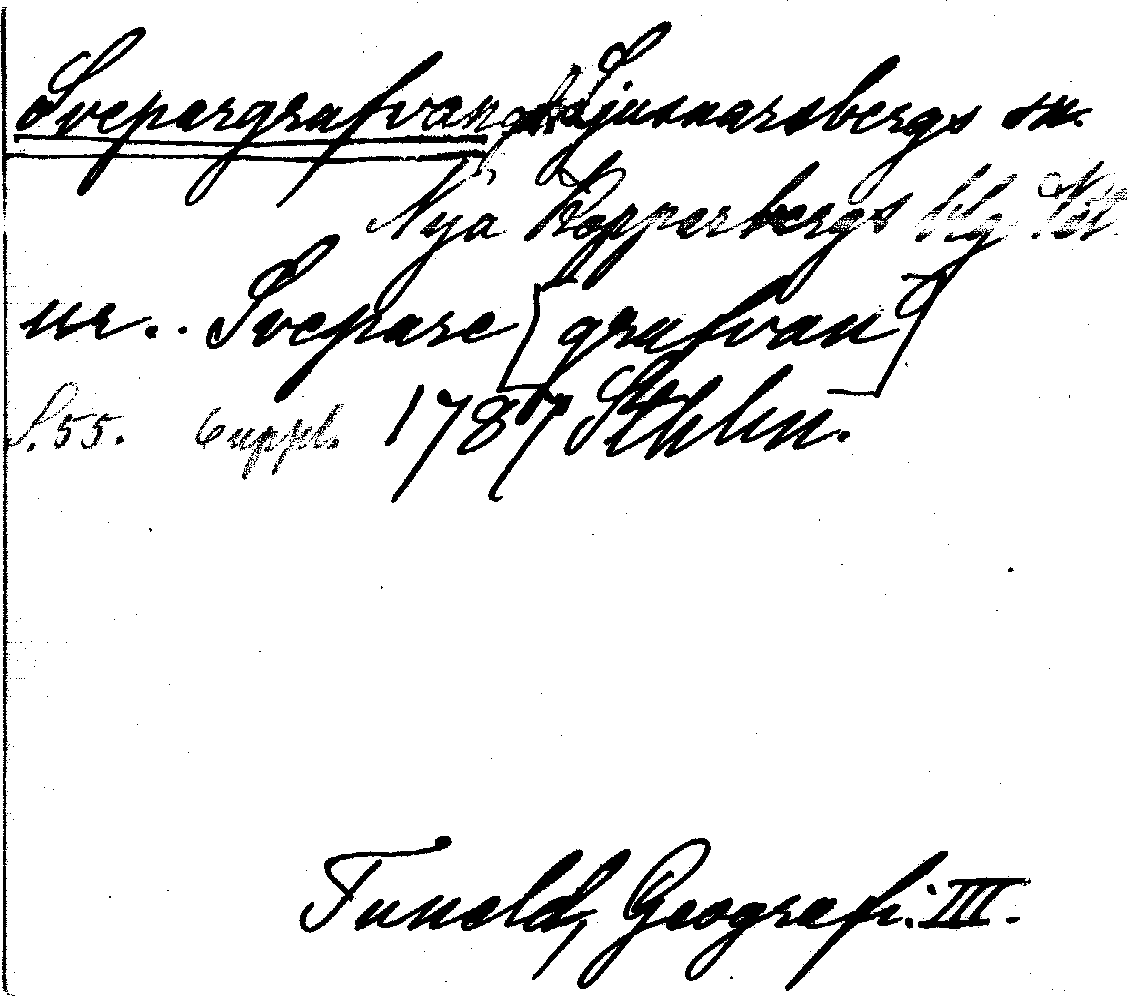 Svepargrafvan Ljusnarsbergs sn.
Nya Kopparbergs blg.
ur.. Svepare [grafvan]
S. 55. 6 uppl. 1787 Sthlm.
Tuneld, Geografi. III.